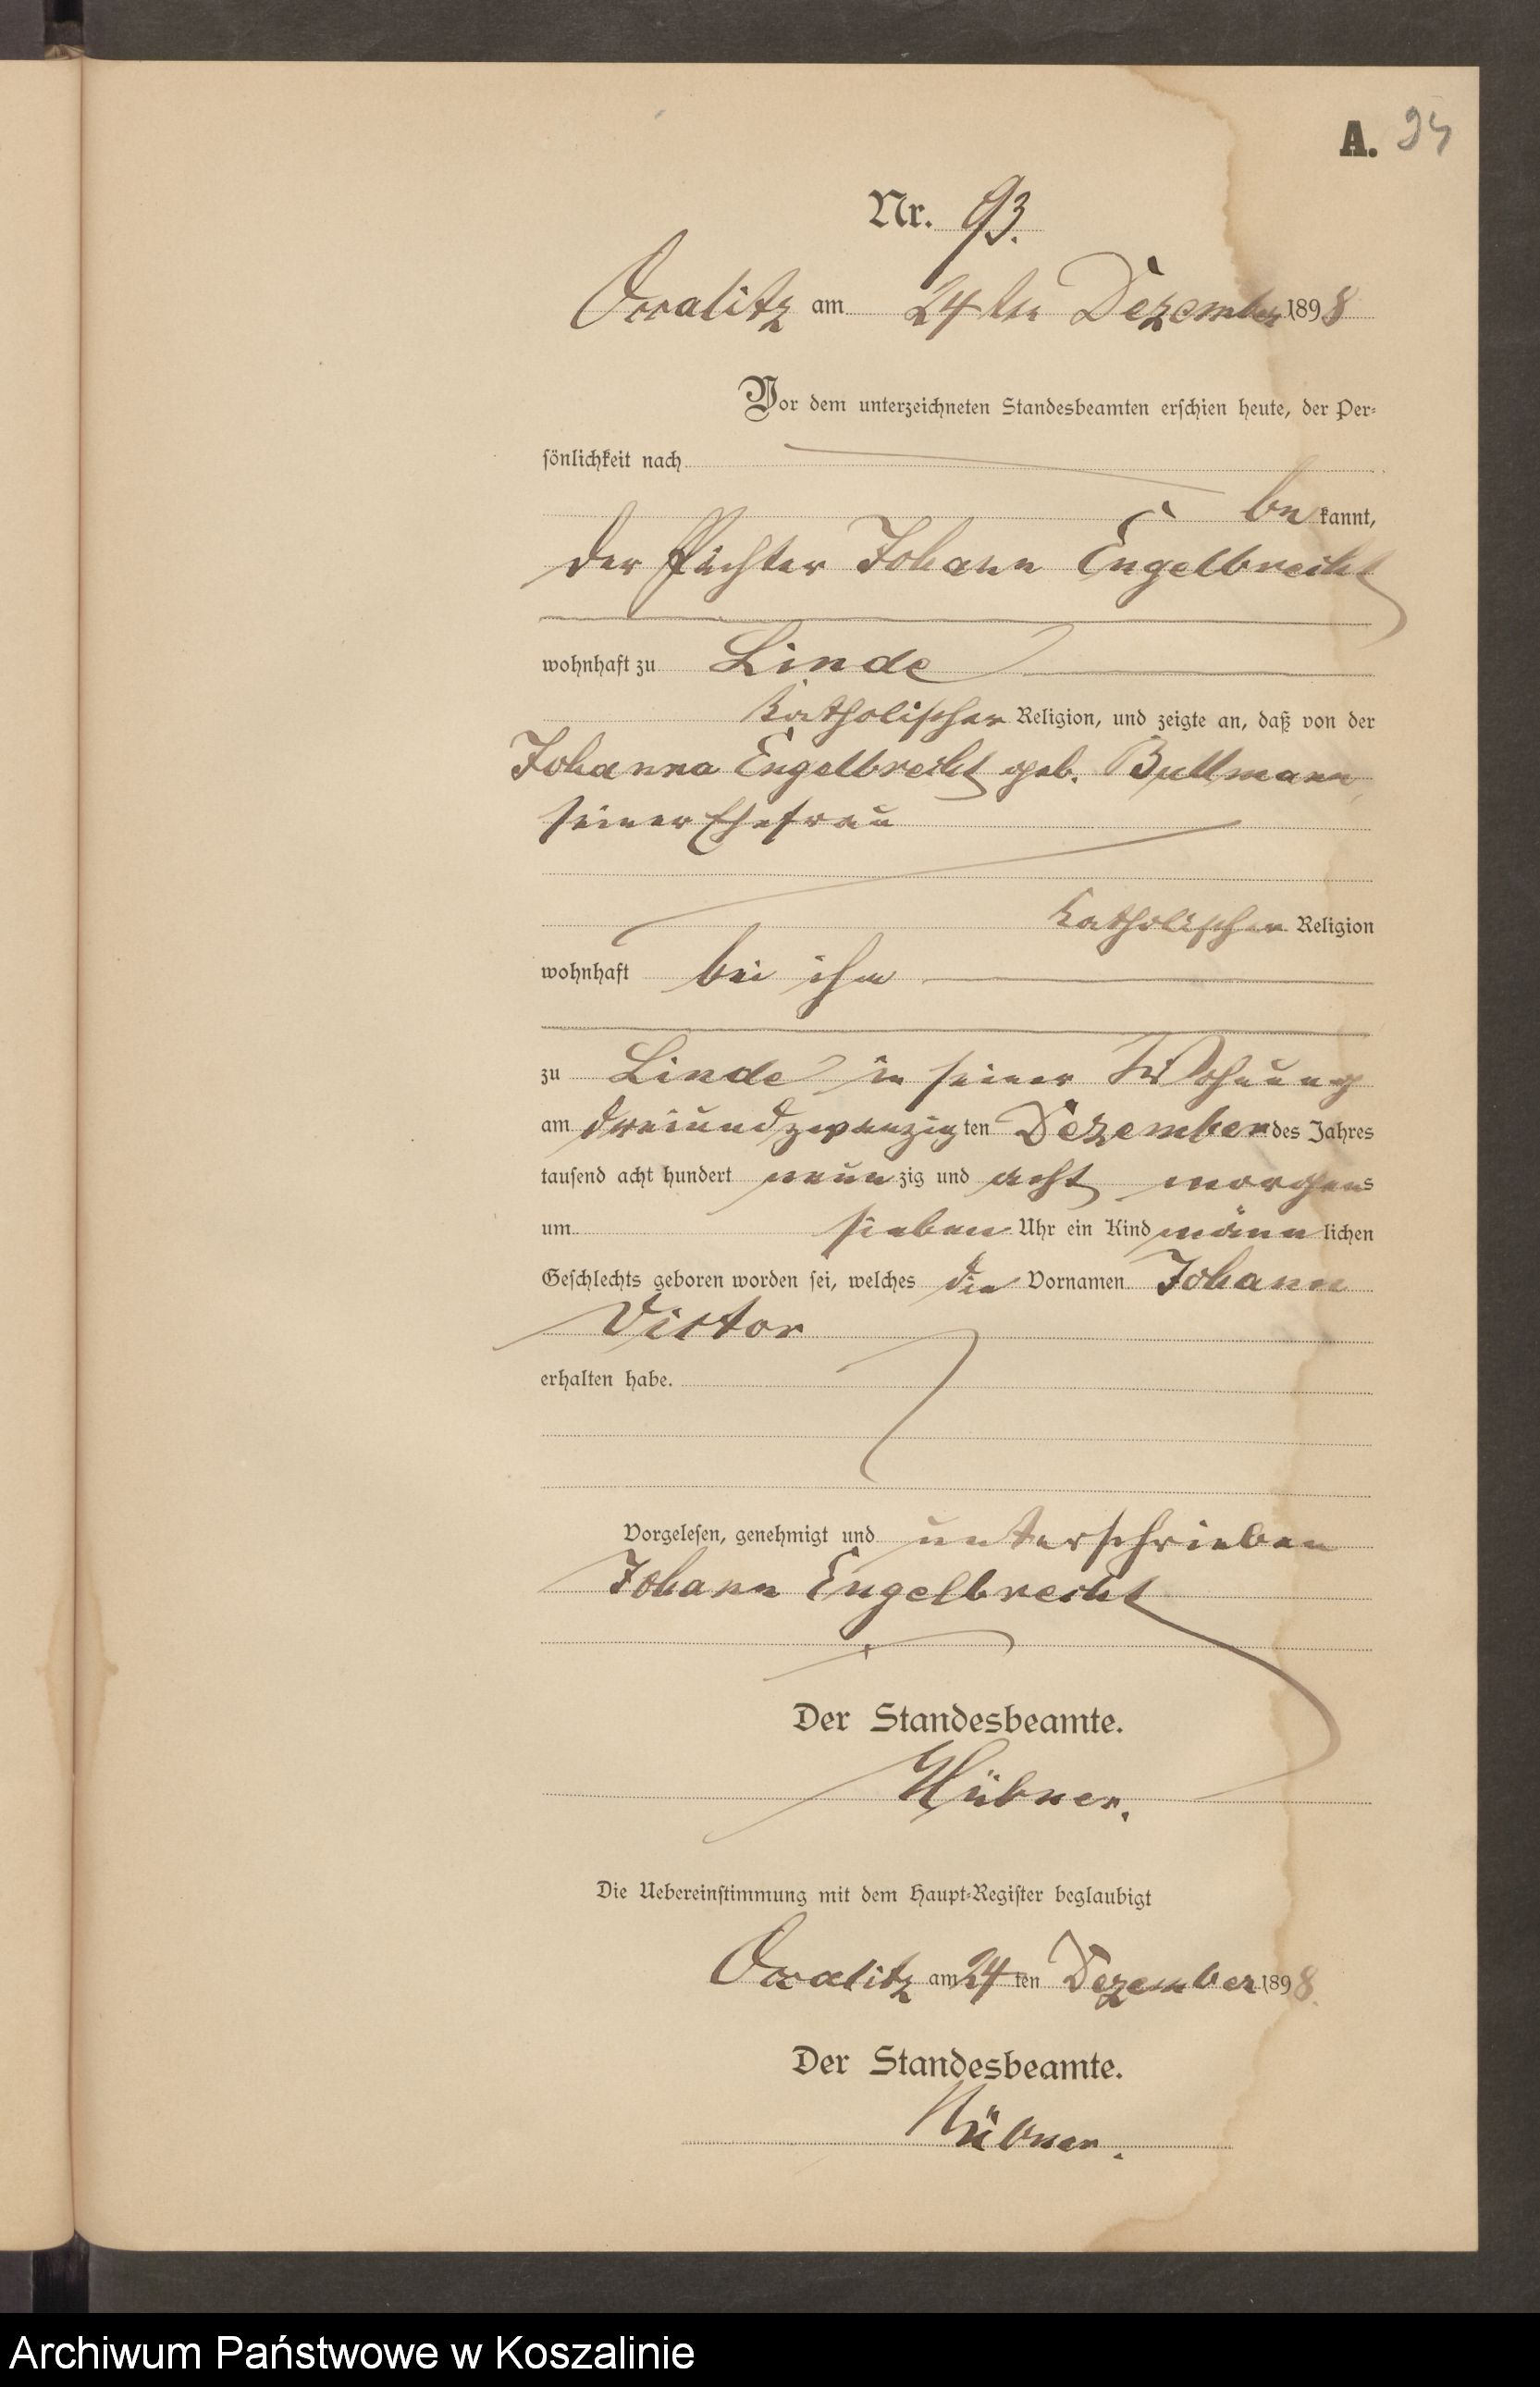 A. 94
Nr. 93.
am 24ten Dezember 1898
Vor dem unterzeichneten Standesbeamten erschien heute, der Per-
sönlichkeit nach
be kannt,
der Pächter Johann Engelbrecht
wohnhaft zu Linde
katholischer Religion, und zeigte an, daß von der
Johanna Engelbrecht geb. Bullmann,
seiner Ehefrau
katholischer Religion
wohnhaft bei ihm
zu Linde in seiner Wohnung
am dreiundzwanzigten Dezember des Jahres
tausend acht hundert neunzig und acht morgens
um sieben Uhr ein Kind männlichen
Geschlechts geboren worden sei, welches die Vornamen Johann
Victor
erhalten habe.
Vorgelesen, genehmigt und unterschrieben
Johann Engelbrecht
Der Standesbeamte.
Hübner.
Die Uebereinstimmung mit dem Haupt-Register beglaubigt
am 24ten Dezember 1898.
Der Standesbeamte.
Hübner.
Archiwum Państwowe w Koszalinie